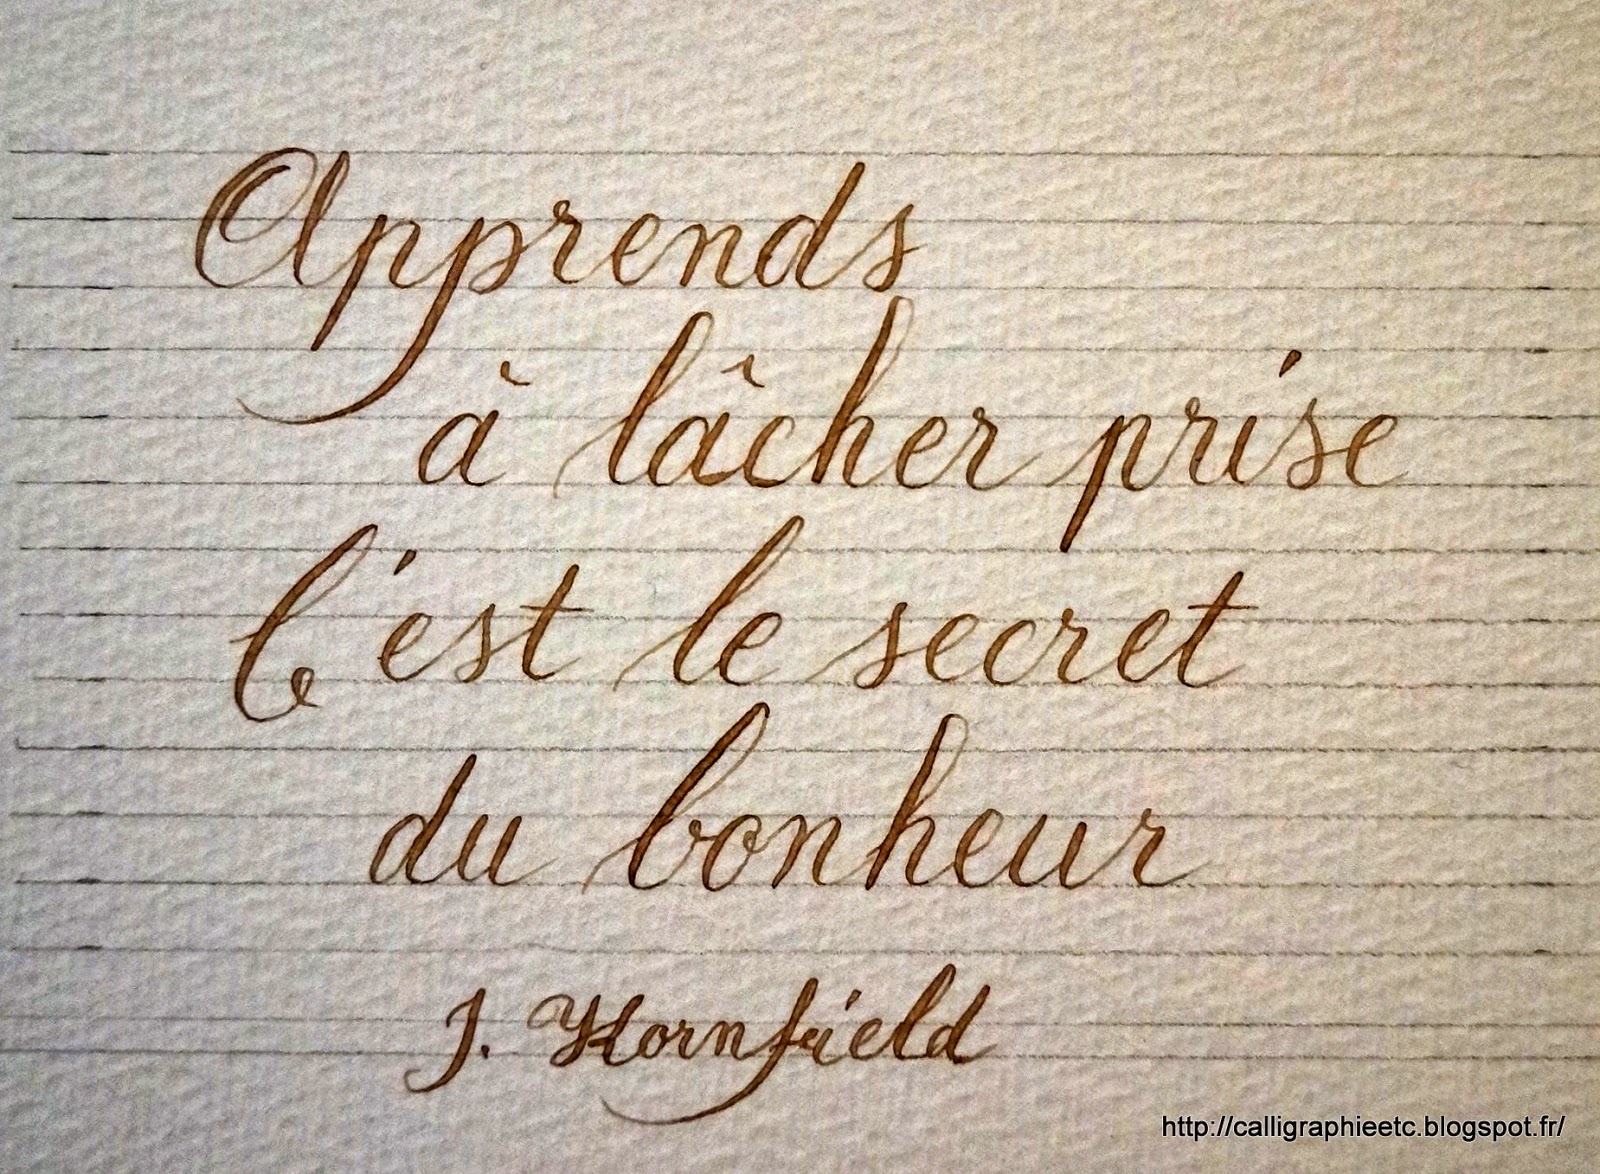 Apprends
à lâcher prise
C'est le secret
du bonheur
J. Kornfield
http://calligraphieetc.blogspot.fr/